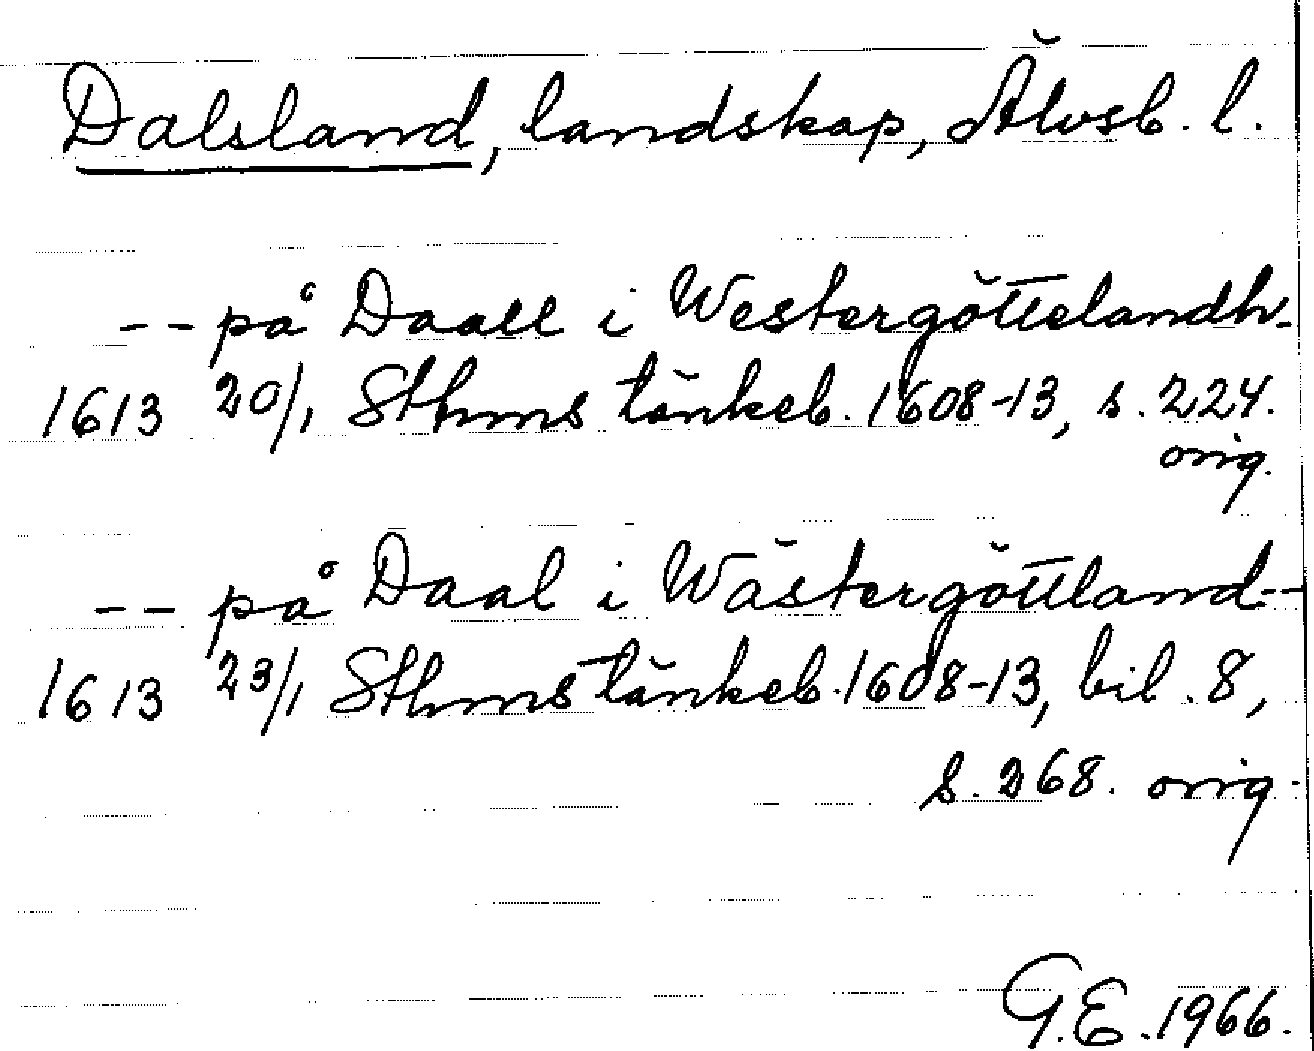 Dalsland, landskap, Älvsb. l.
-- på Daall i Westergöttelandh-
1613 20/1 Sthms tänkeb. 1608-13, s. 224.
orig.
-- på Daal i Wästergöttland--
1613 23/1 Sthms tänkeb. 1608-13, bil. 8,
s. 268. orig.
G.E. 1966.